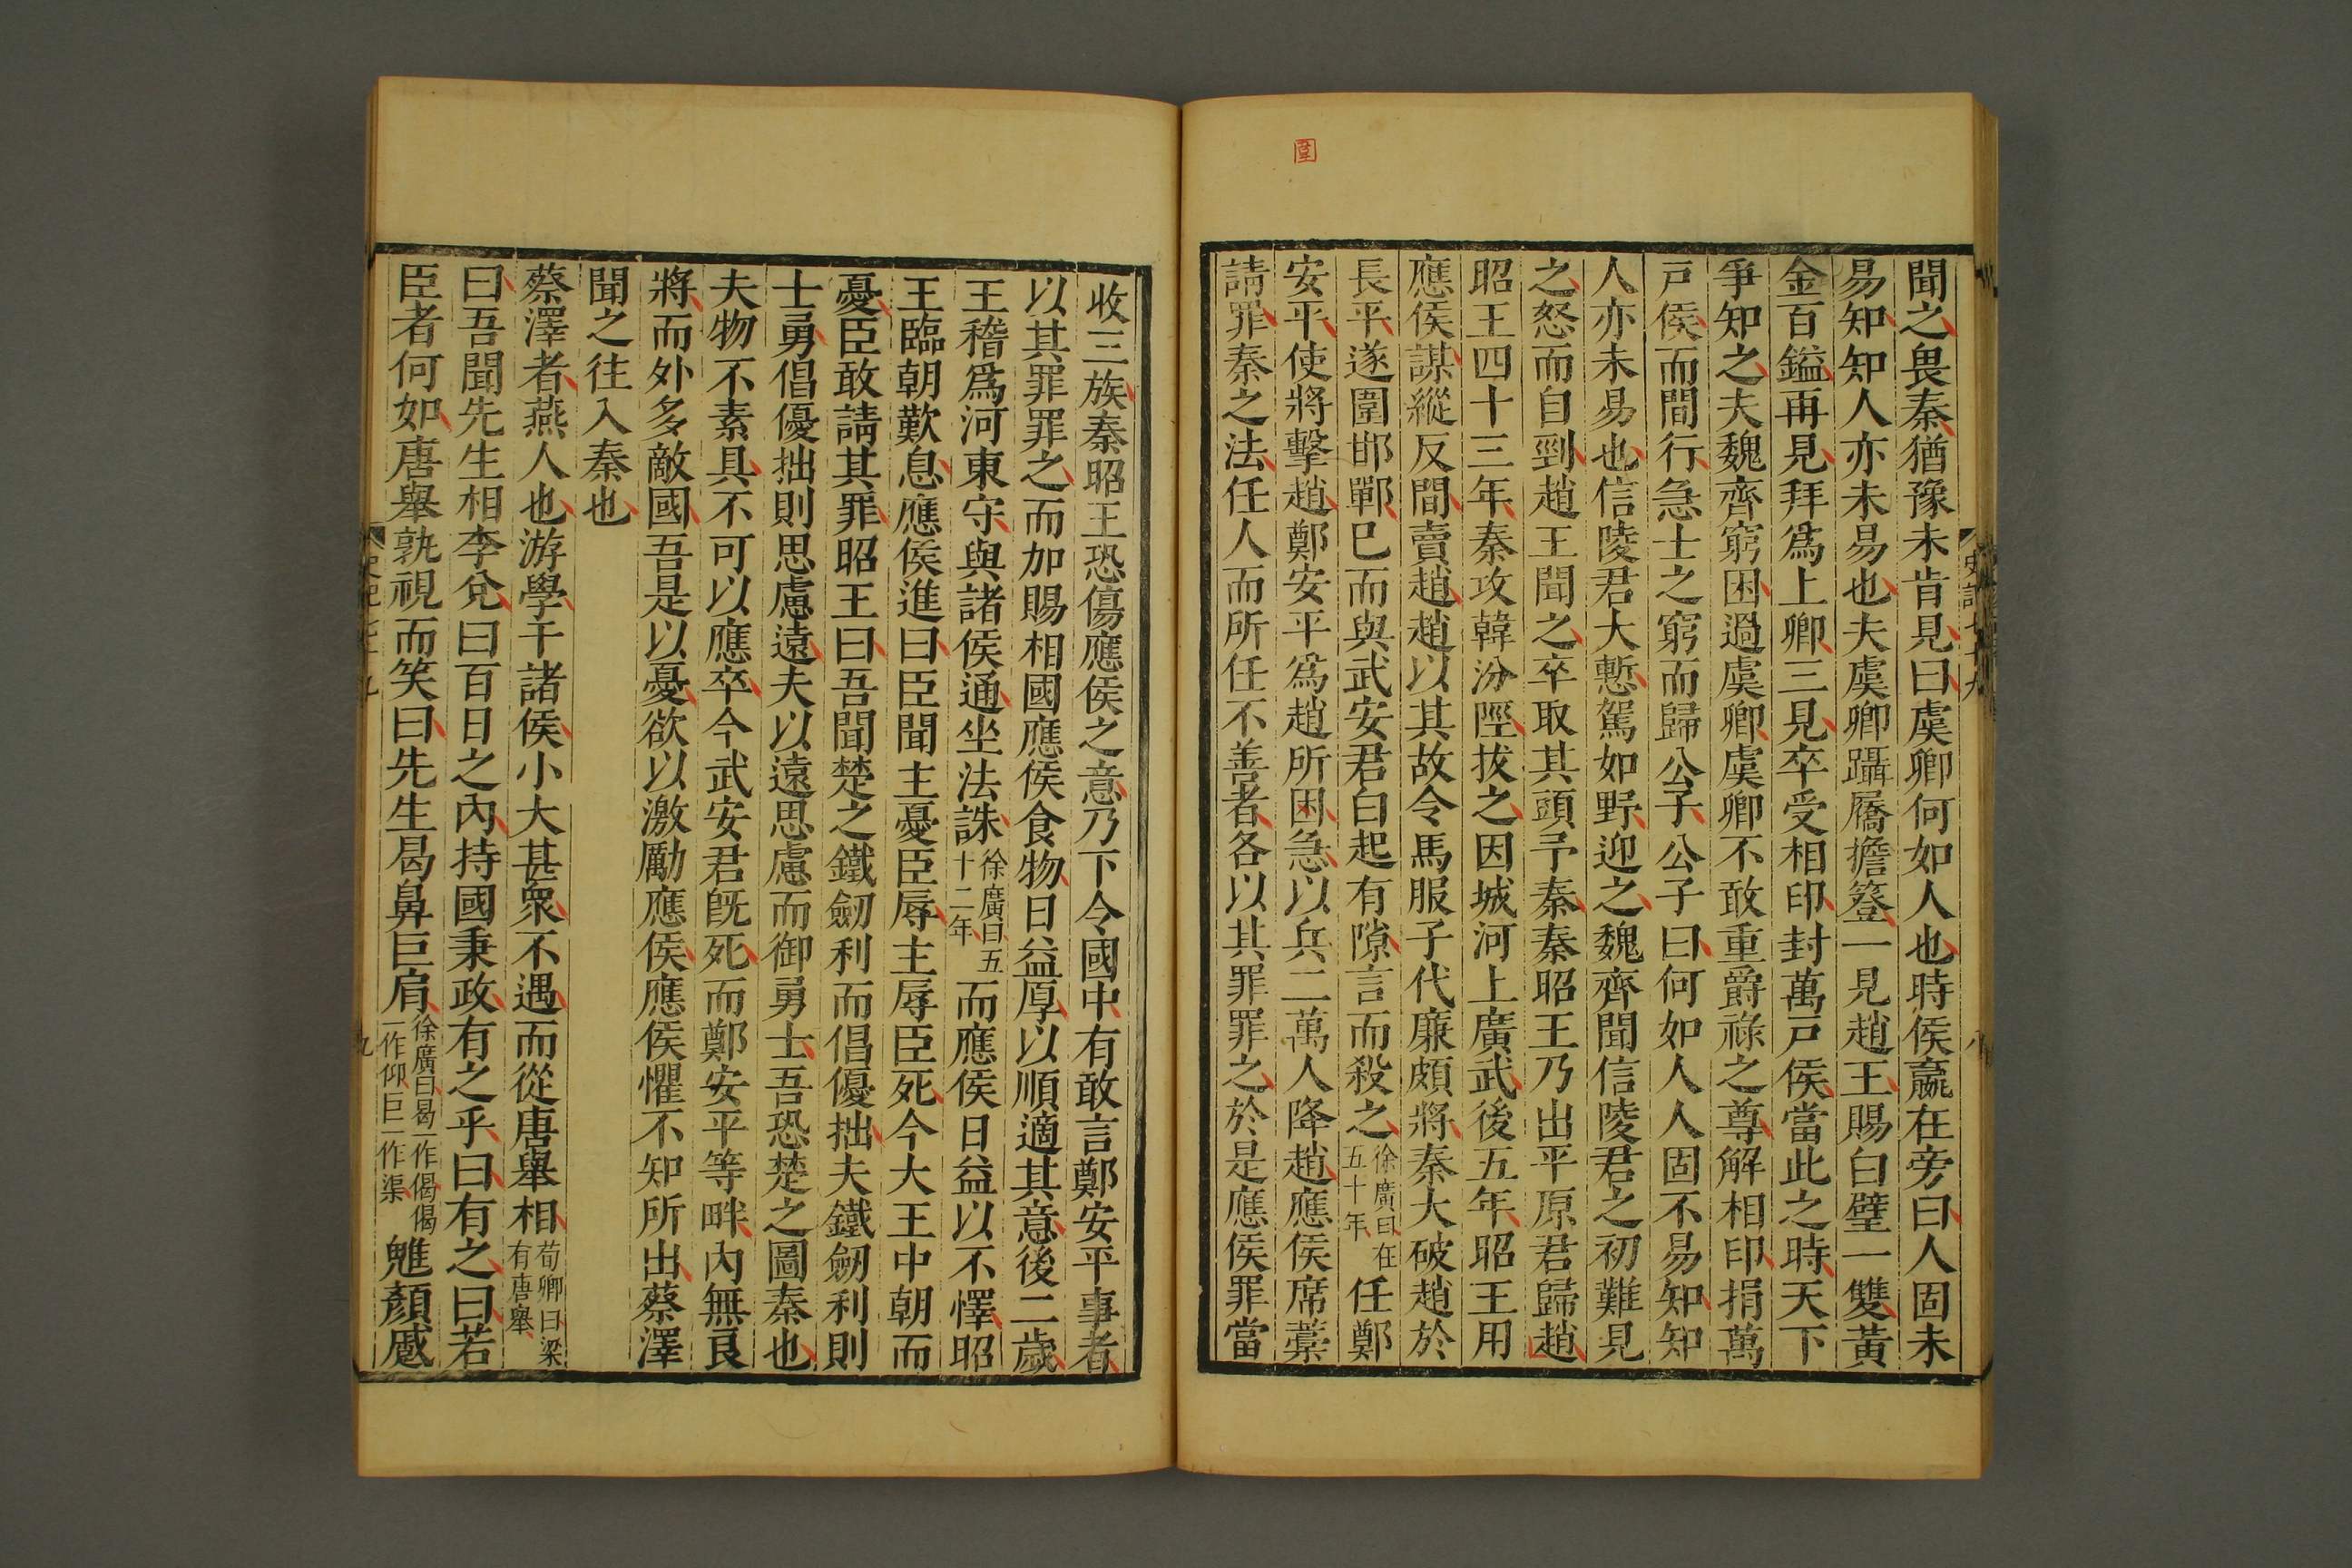 聞之畏秦猶豫未肯見曰虞卿何如人也時侯嬴在旁曰人固未
易知知人亦未易也夫虞卿躡屩擔簦一見趙王賜白璧一雙黃
金百鎰再見拜爲上卿三見卒受相印封萬戸侯當此之時天下
爭知之夫魏齊窮困過虞卿虞卿不敢重爵祿之尊解相印捐萬
戸侯而間行急士之窮而歸公子公子曰何如人人固不易知知
人亦未易也信陵君大慙駕如野迎之魏齊聞信陵君之初難見
之怒而自剄趙王聞之卒取其頭予秦秦昭王乃出平原君歸趙
昭王四十三年秦攻韓汾陘拔之因城河上廣武後五年昭王用
應侯謀縱反間賣趙趙以其故令馬服子代廉頗將秦大破趙於
長平遂圍邯鄲已而與武安君白起有隙言而殺之徐廣曰在五十年任鄭
安平使將擊趙鄭安平爲趙所困急以兵二萬人降趙應侯席藁
請罪秦之法任人而所任不善者各以其罪罪之於是應侯罪當
收三族秦昭王恐傷應侯之意乃下令國中有敢言鄭安平事者
以其罪罪之而加賜相國應侯食物日益厚以順適其意後二歲
王稽爲河東守與諸侯通坐法誅徐廣曰五十二年而應侯日益以不懌昭
王臨朝歎息應侯進曰臣聞主憂臣辱主辱臣死今大王中朝而
憂臣敢請其罪昭王曰吾聞楚之鐵劒利而倡優拙夫鐵劒利則
士勇倡優拙則思慮遠夫以遠思慮而御勇士吾恐楚之圖秦也
夫物不素具不可以應卒今武安君旣死而鄭安平等畔內無良
將而外多敵國吾是以憂欲以激勵應侯應侯懼不知所出蔡澤
聞之往入秦也
蔡澤者燕人也游學干諸侯小大甚衆不遇而從唐舉相荀卿曰梁有唐舉
曰吾聞先生相李兌曰百日之內持國秉政有之乎曰有之曰若
臣者何如唐舉孰視而笑曰先生曷鼻巨肩徐廣曰曷一作偈偈一作仰巨一作渠魋顏蹙